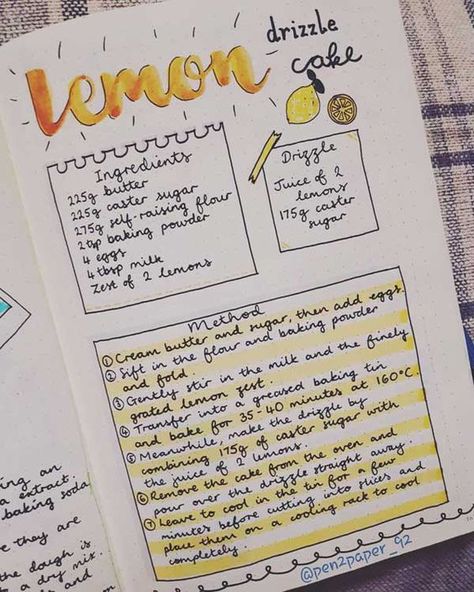 lemon drizzle
cake
Ingredients
225g butter
225g caster sugar
275g self-raising flour
2tsp baking powder
4 eggs
4 tbsp milk
Zest of 2 lemons
Drizzle
Juice of 2
lemons
175g caster
sugar
Method
① Cream butter and sugar, then add eggs
and fold.
② Sift in the flour and baking powder
③ Gently stir in the milk and the finely
grated lemon zest.
④ Transfer into a greased baking tin
and bake for 35-40 minutes at 160°C.
⑤ Meanwhile, make the drizzle by
combining 175g of caster sugar with
the juice of 2 lemons.
⑥ Remove the cake from the oven and
pour over the drizzle straight away.
⑦ Leave to cool in the tin for a few
minutes before cutting into slices and
place them on a cooling rack to cool
completely.
@pen2paper_92
an
extract.
baking soda
they are
the dough is
a dry mix.
and